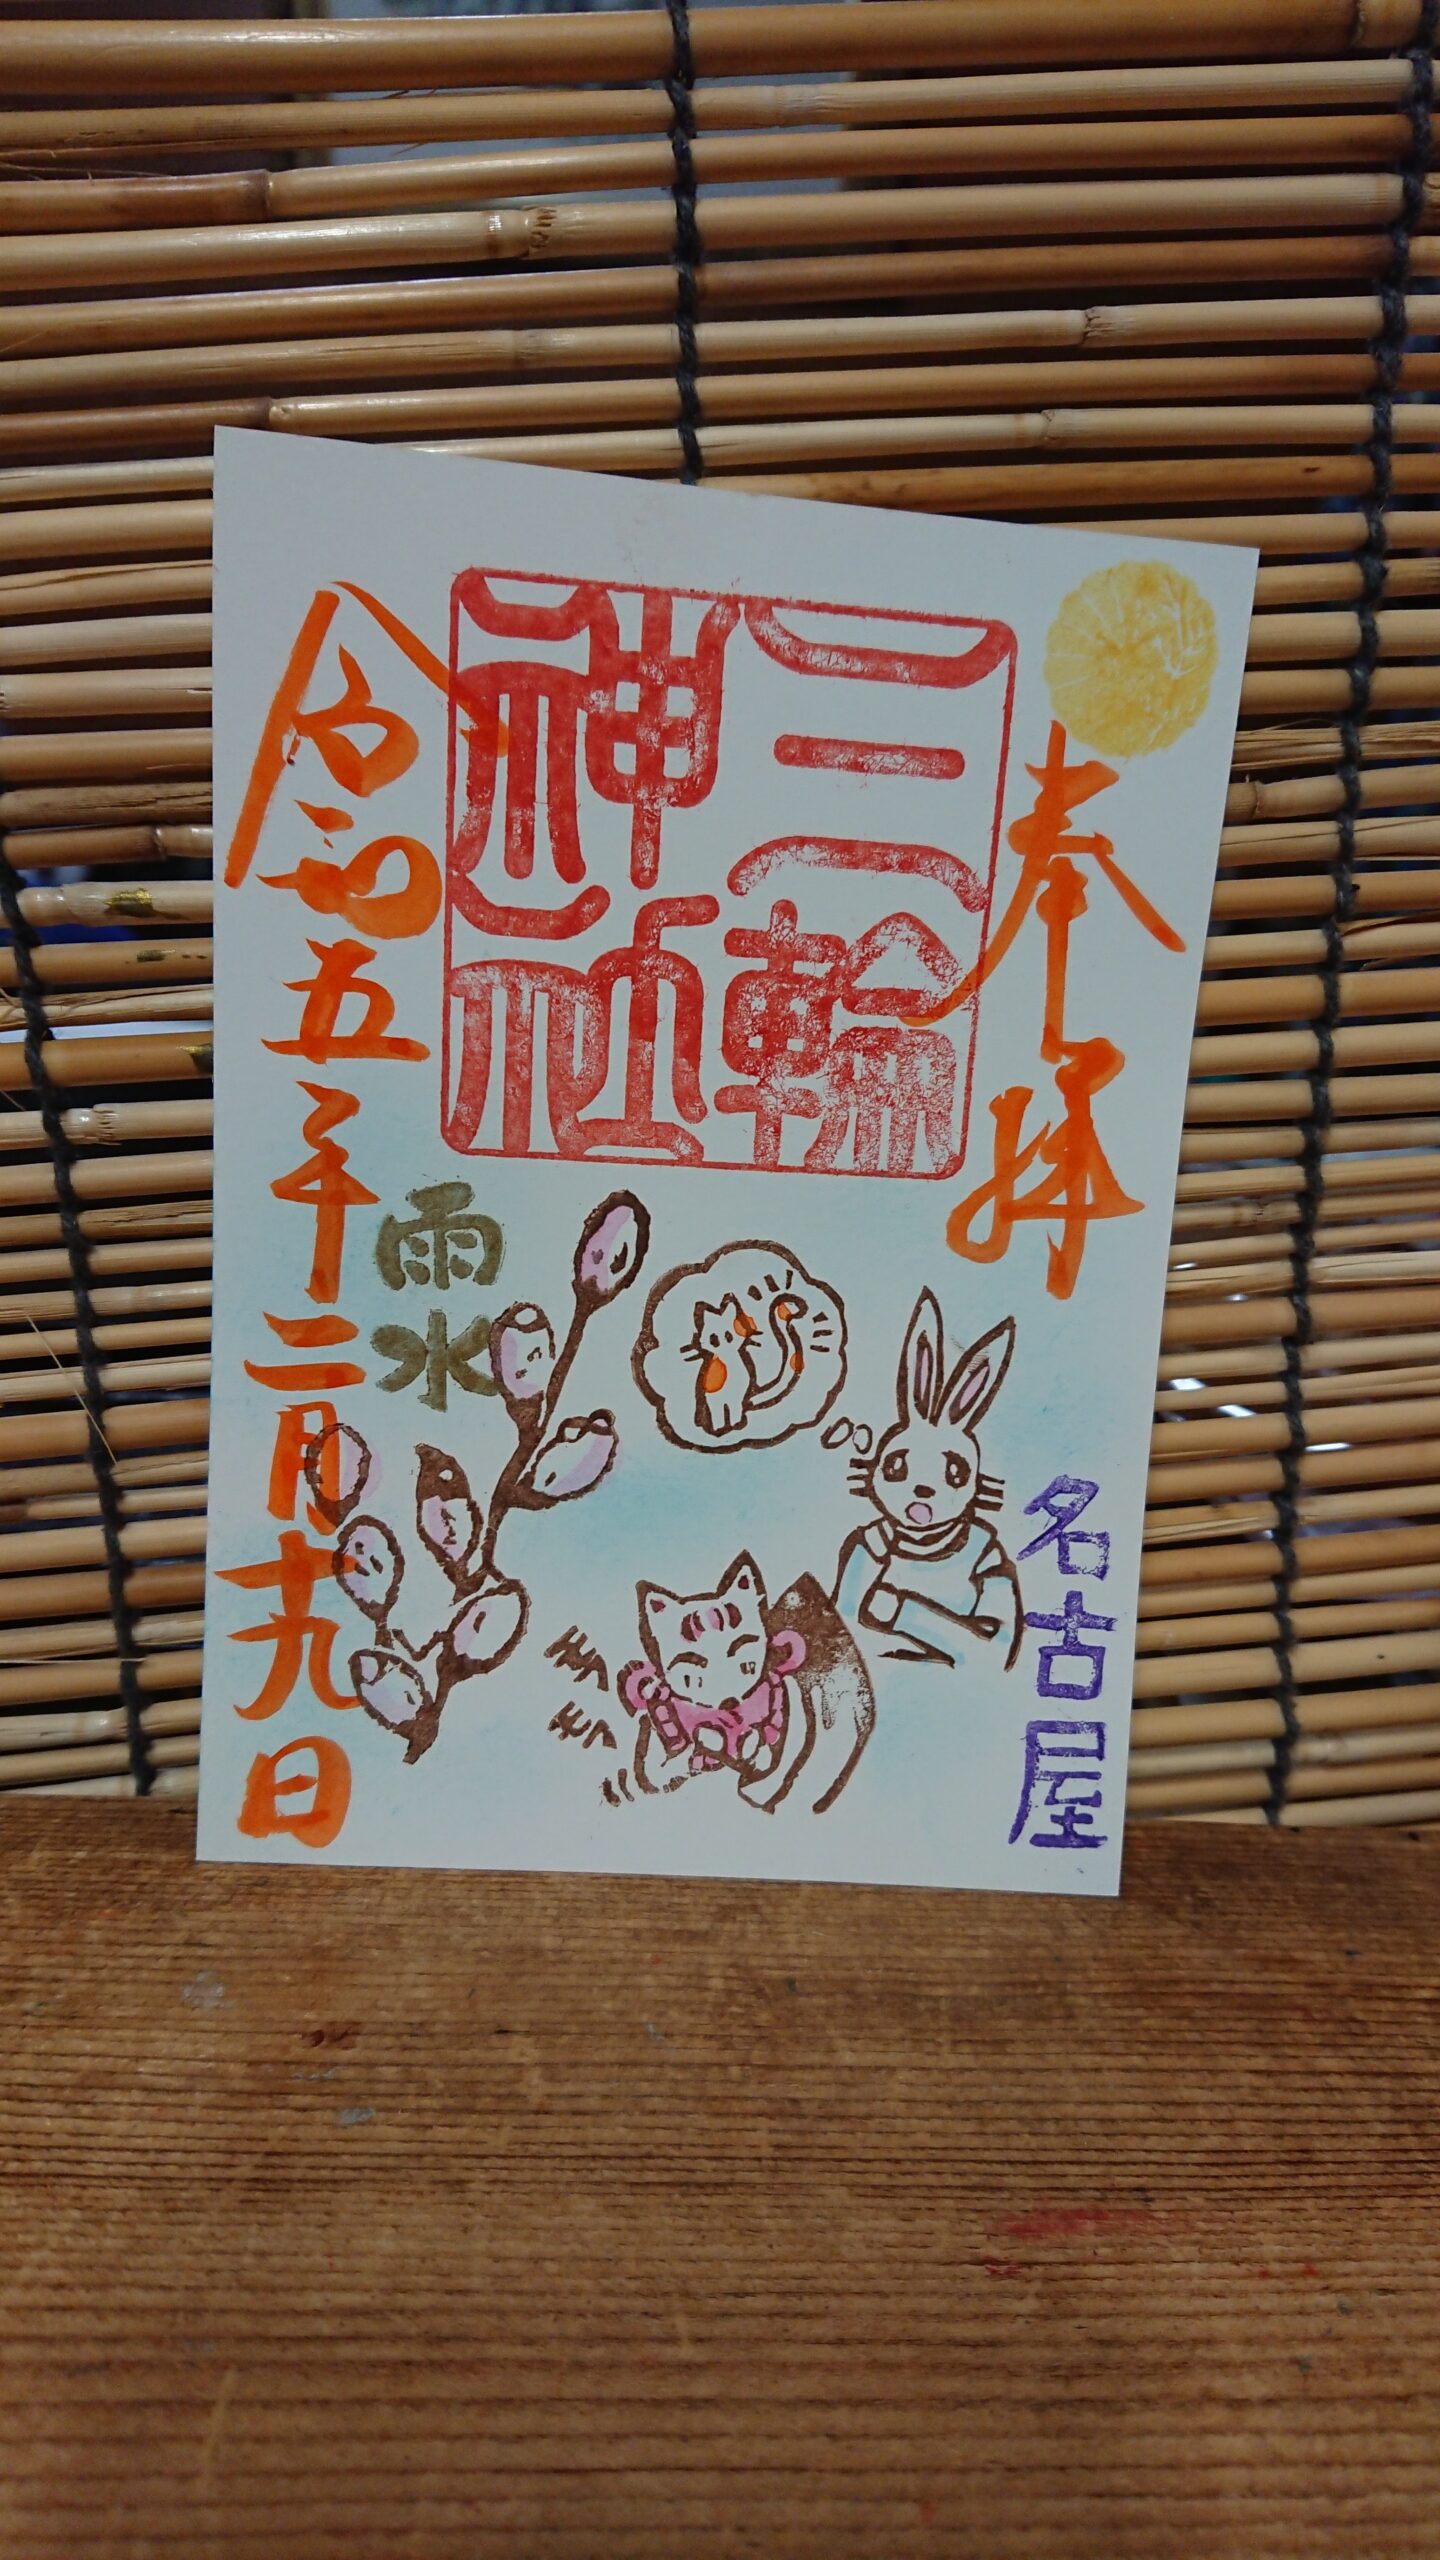 奉拝
三輪
神社
名古屋
雨水
モフ
モフ
令和五年二月十九日